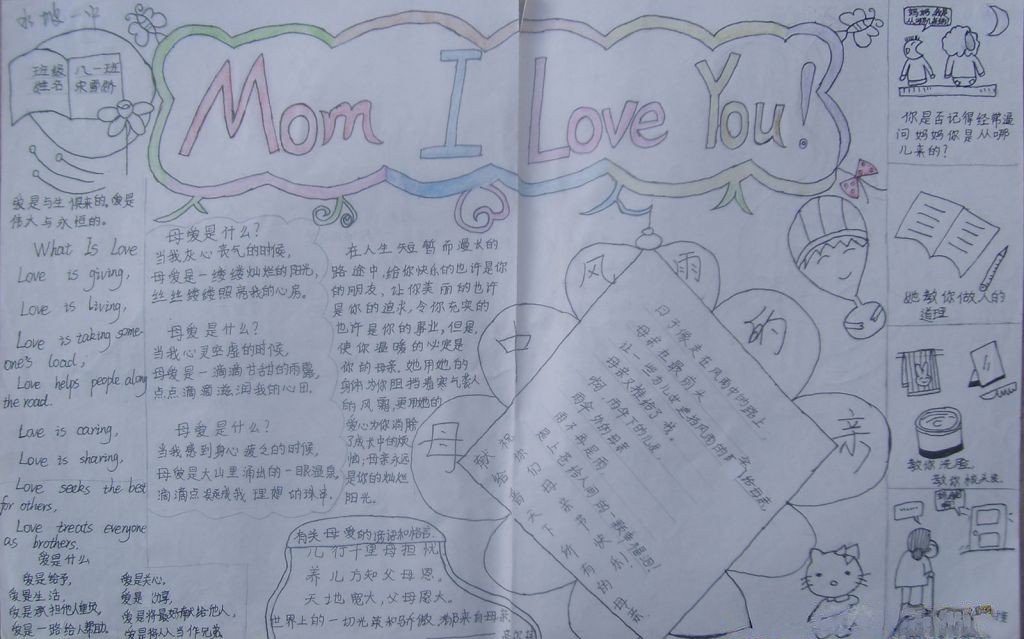 水坡一中
班级 八一班
姓名 宋雪娇
Mom I Love You!
爱是与生俱来的,爱是
伟大与永恒的。
What Is Love
Love is giving,
Love is living,
Love is taking some-
one's load,
Love helps people along
the road.
Love is caring,
Love is sharing,
Love seeks the best
for others,
Love treats everyone
as brothers.
爱是什么
爱是给予,
爱是生活,
爱是承担他人重负,
爱是一路给人帮助。
爱是关心,
爱是分享,
爱是将最好献给他人,
爱是将人当作兄弟
母爱是什么?
当我灰心丧气的时候,
母爱是一缕缕灿烂的阳光,
丝丝缕缕照亮我的心房。
母爱是什么?
当我心灵空虚的时候,
母爱是一滴滴甘甜的雨露,
点点滴滴滋润我的心田。
母爱是什么?
当我感到身心疲乏的时候,
母爱是大山里涌出的一眼温泉,
滴滴点点 我理想的珠寻。
在人生短暂而漫长的
路途中,给你快乐的也许是你
的朋友,让你美丽的也许
是你的追求,令你充实的
也许是你的事业,但是,
使你温暖的必定是
你的母亲。她用她的
身体为你阻挡着寒气袭人
的风霜,更用她的
爱心为你消除
了成长中的烦
恼;母亲永远
是你的灿烂
阳光。
有关母爱的谚语和格言
儿行千里母担忧
养儿方知父母恩。
天地宽大,父母恩大。
世界上的一切光荣和骄傲,都来自母亲
风雨中的母亲
日子像走在风雨中的路上
母亲在最前头
让一些为儿女遮挡风雨的
母亲又推给了我。
啊,雨伞下的儿女
雨伞外的母亲
雨不再是雨
是上苍给人间的
祝你们母
给天下所有的母亲
妈妈,我是
从哪儿来的?
你是否记得经常逼
问妈妈你是从哪
儿来的?
她教你做人的
道理
教你洗脸,
教你